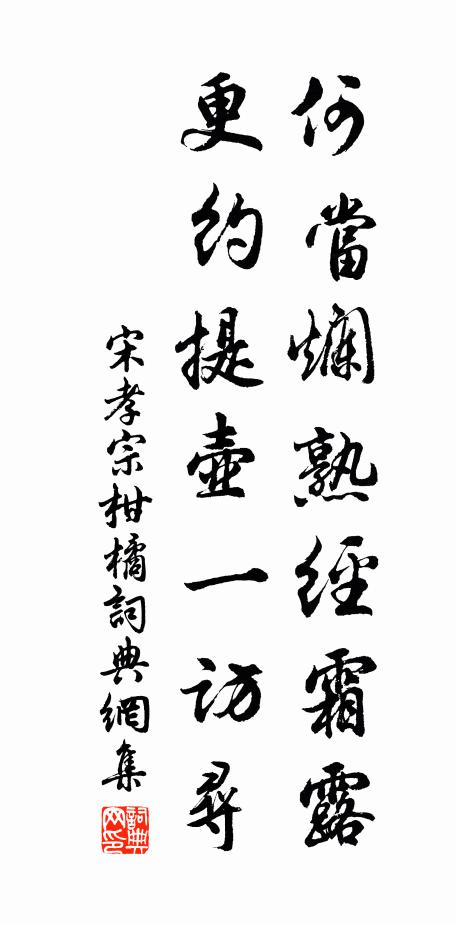 何當爛熟經霜露
更約提壺一訪尋
宋孝宗柑橘詞典網集
詞典网印